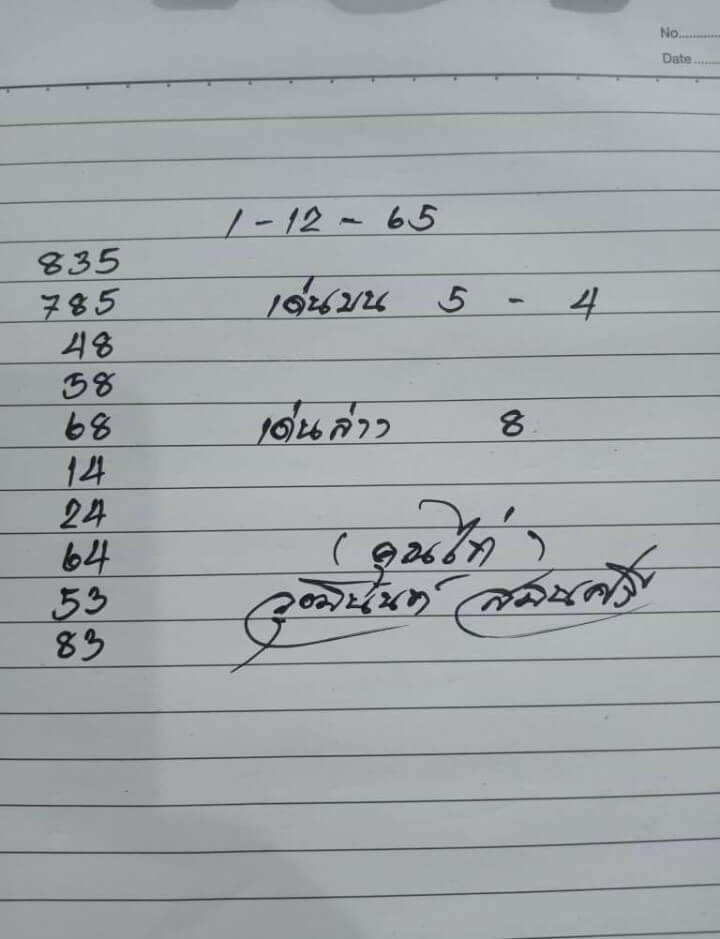 No.........
Date.......
1-12-65
835
785 เด่นบน 5 - 4
48
58
68 เด่นล่าง 8
14
24
64
53
83